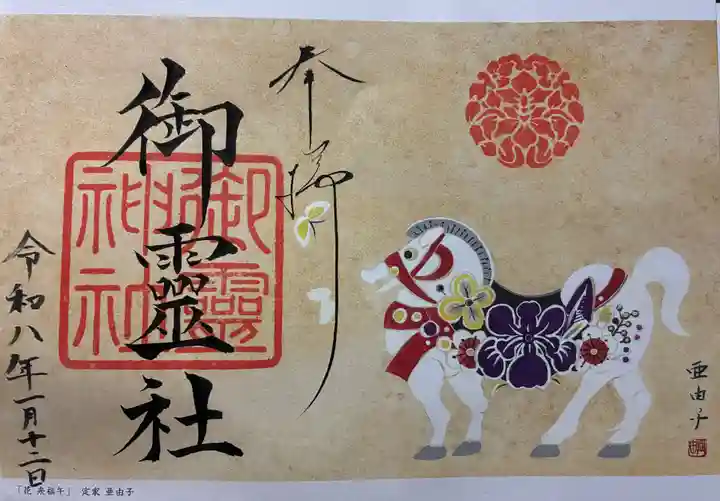 奉拝
御靈社
御靈神社
令和八年一月十二日
亜由子
「花 来福午」 定家 亜由子